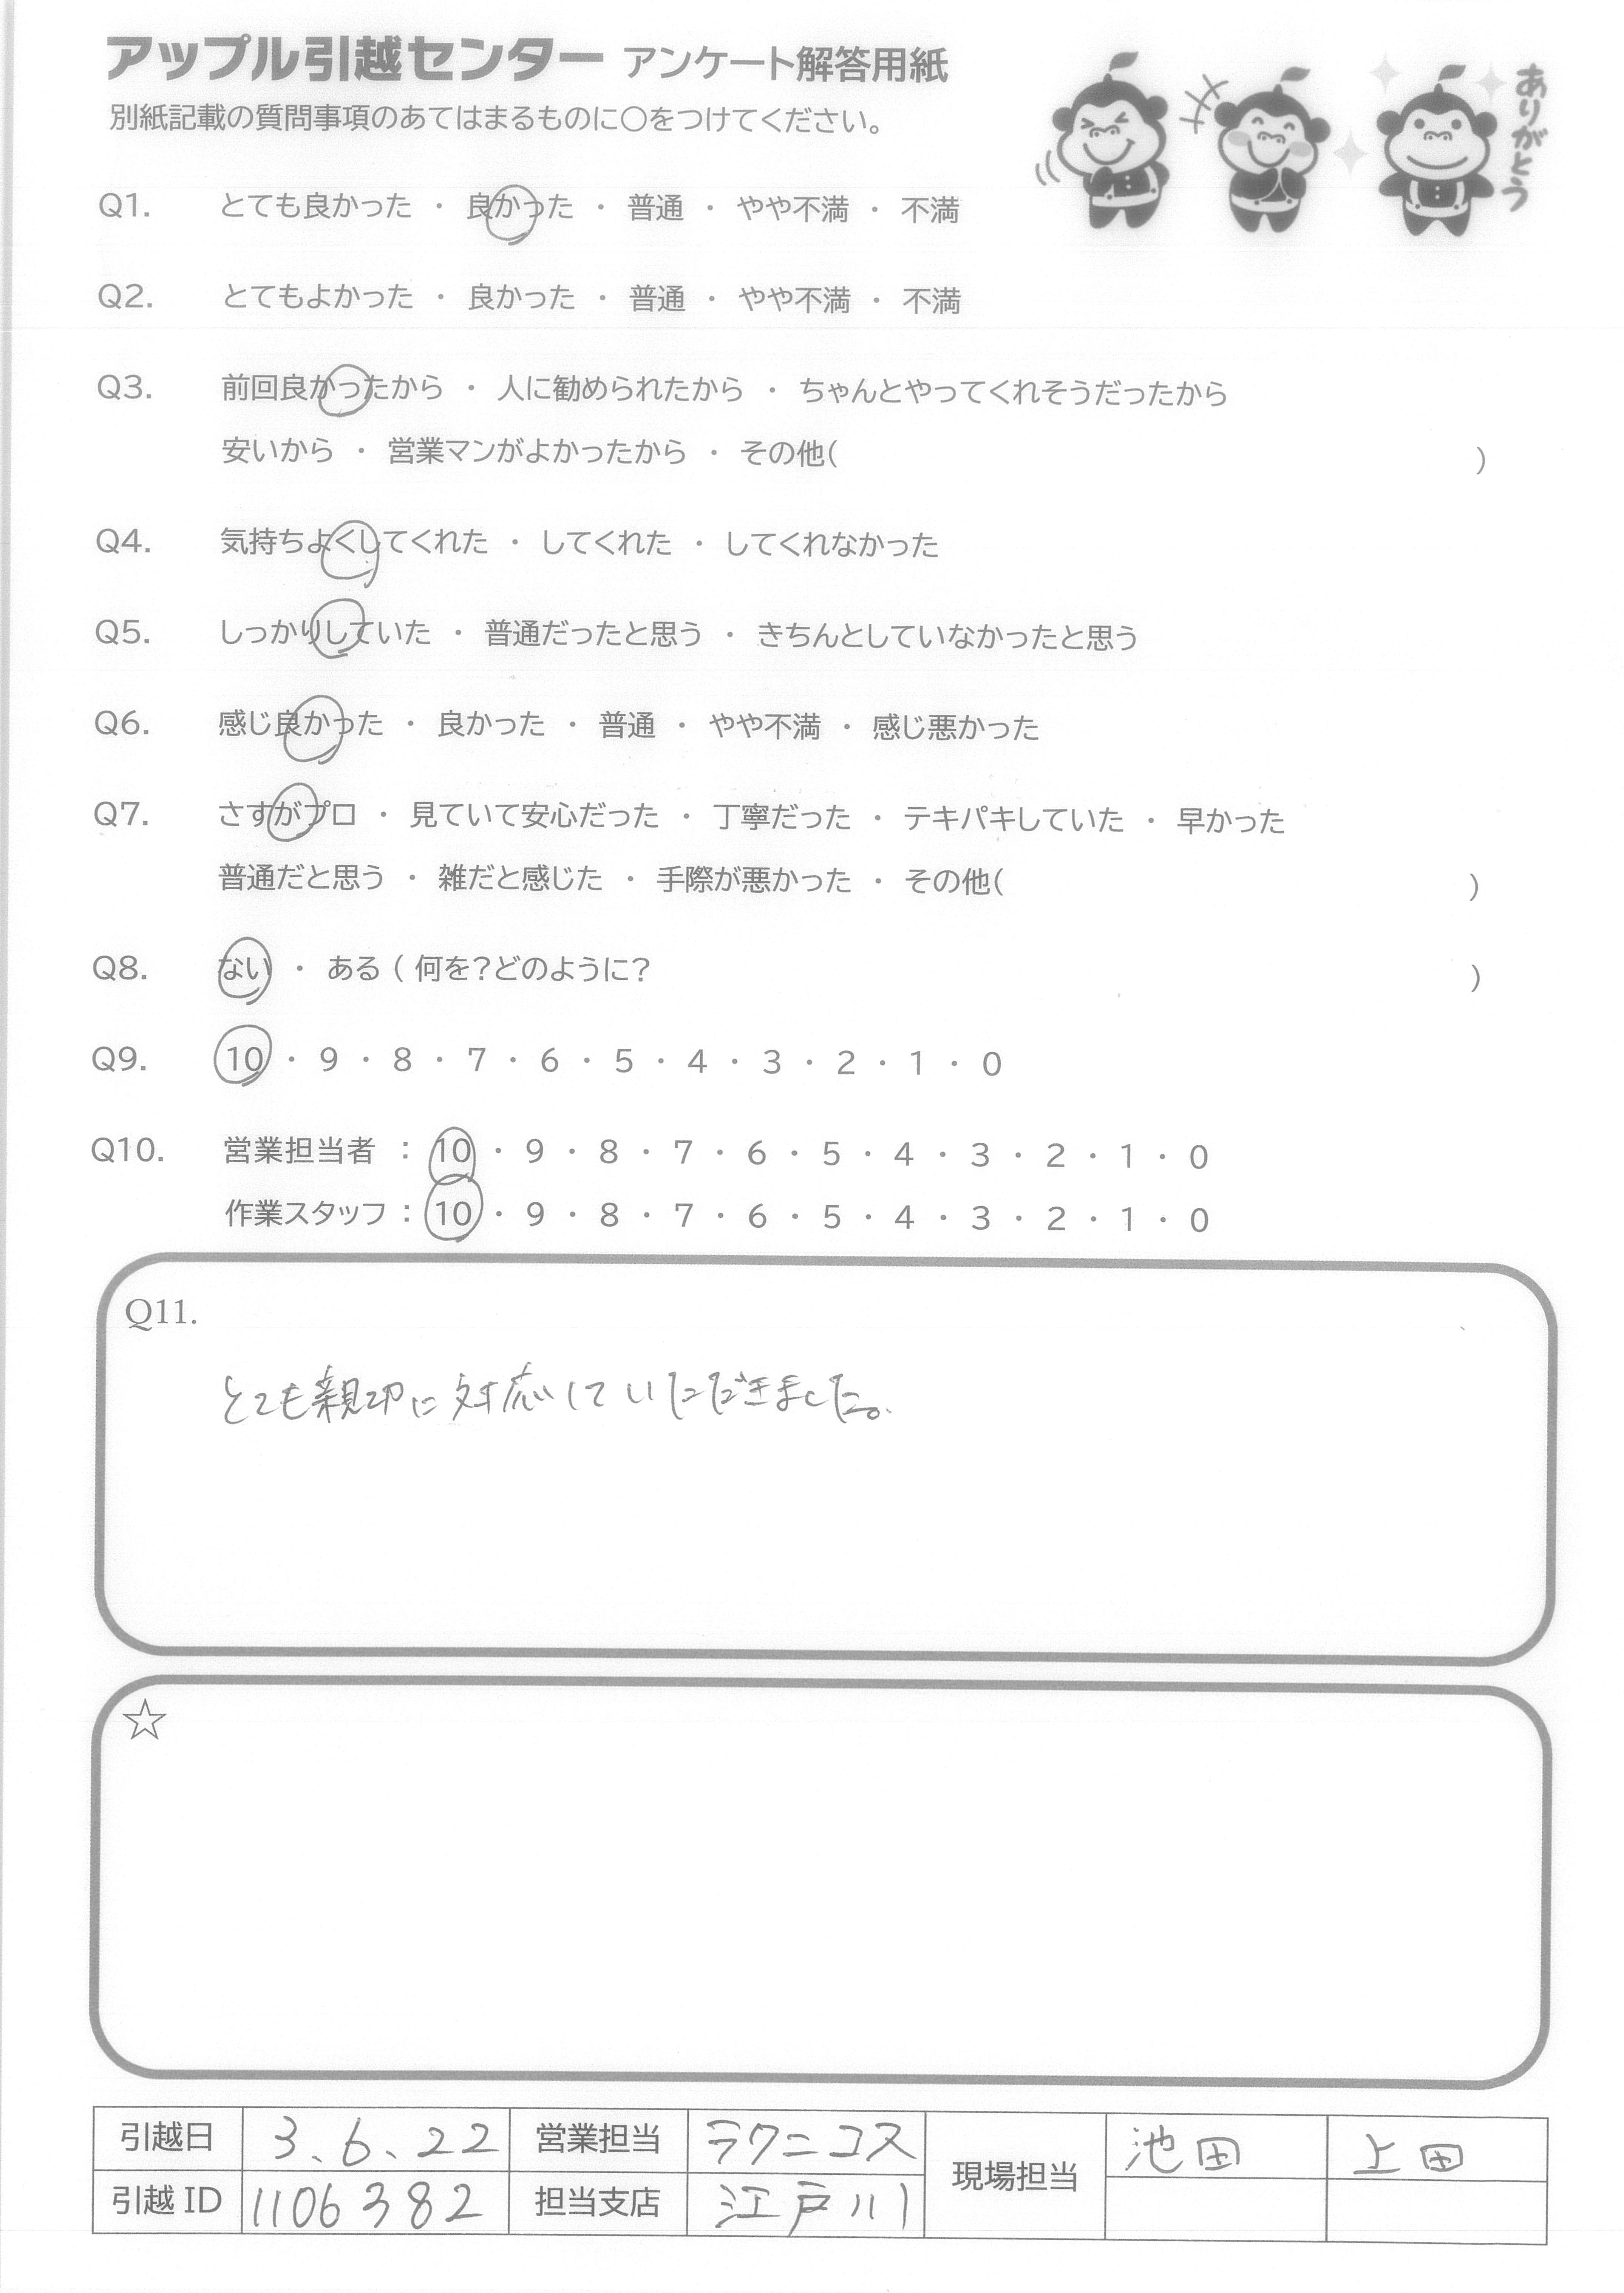 アップル引越センター アンケート解答用紙
ありがとう
別紙記載の質問事項のあてはまるものに○をつけてください。
Q1. とても良かった ・ 良かった ・ 普通 ・ やや不満 ・ 不満
Q2. とてもよかった ・ 良かった ・ 普通 ・ やや不満 ・ 不満
Q3. 前回良かったから ・ 人に勧められたから ・ ちゃんとやってくれそうだったから
安いから ・ 営業マンがよかったから ・ その他( )
Q4. 気持ちよくしてくれた ・ してくれた ・ してくれなかった
Q5. しっかりしていた ・ 普通だったと思う ・ きちんとしていなかったと思う
Q6. 感じ良かった ・ 良かった ・ 普通 ・ やや不満 ・ 感じ悪かった
Q7. さすがプロ ・ 見ていて安心だった ・ 丁寧だった ・ テキパキしていた ・ 早かった
普通だと思う ・ 雑だと感じた ・ 手際が悪かった ・ その他( )
Q8. ない ・ ある ( 何を?どのように? )
Q9. 10 ・ 9 ・ 8 ・ 7 ・ 6 ・ 5 ・ 4 ・ 3 ・ 2 ・ 1 ・ 0
Q10. 営業担当者 : 10 ・ 9 ・ 8 ・ 7 ・ 6 ・ 5 ・ 4 ・ 3 ・ 2 ・ 1 ・ 0
作業スタッフ : 10 ・ 9 ・ 8 ・ 7 ・ 6 ・ 5 ・ 4 ・ 3 ・ 2 ・ 1 ・ 0
Q11.
とても親切に対応していただきました。
☆
引越日 3、6、22 営業担当 ラクニコス 現場担当 池田 上田
引越 ID 1106382 担当支店 江戸川